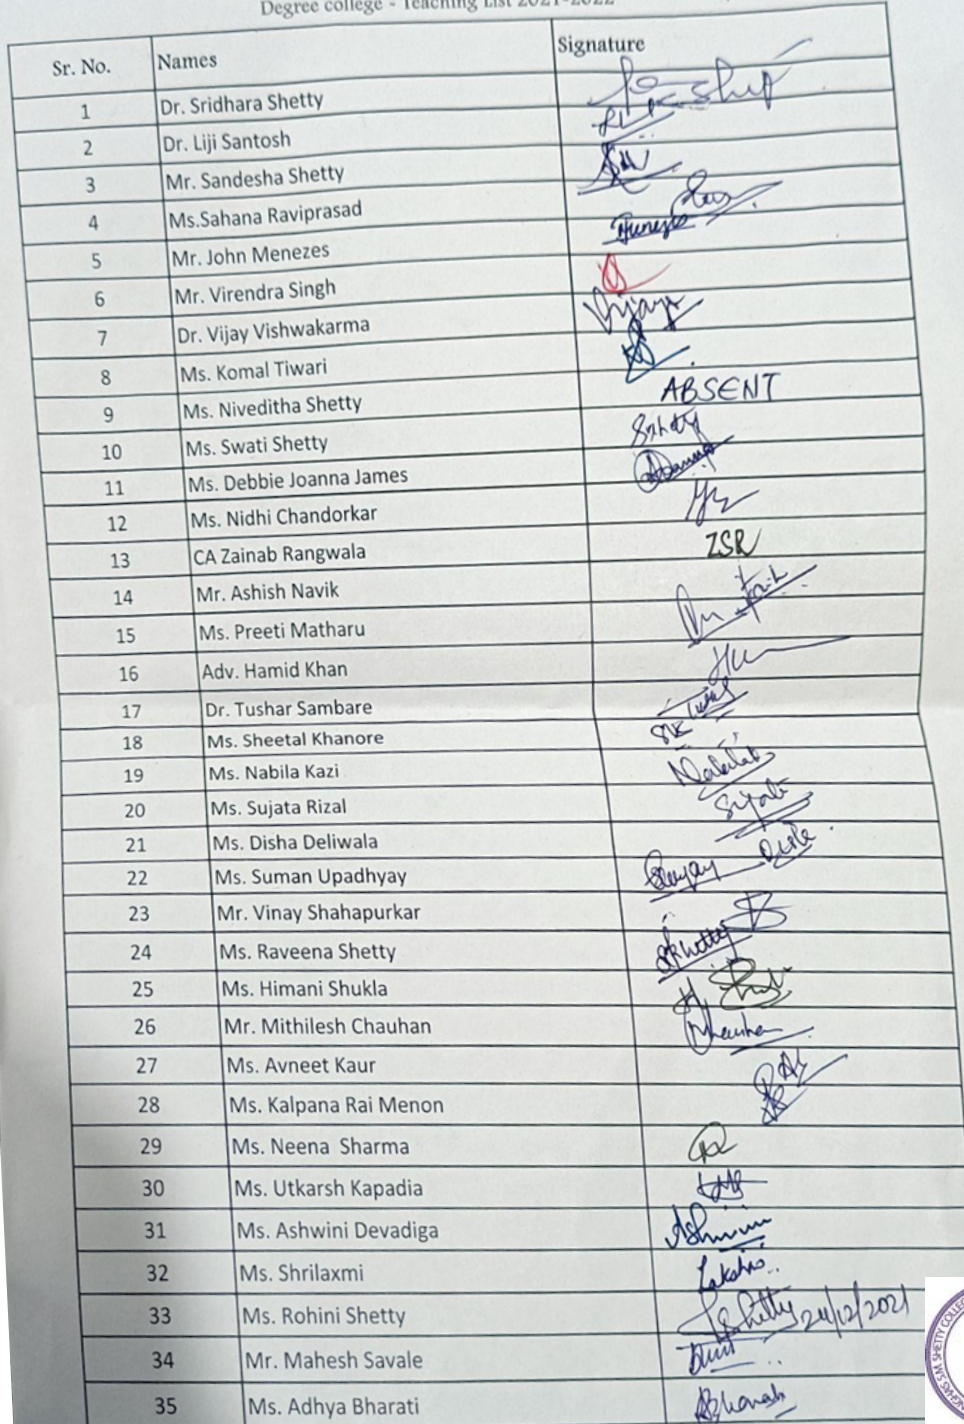 Degree college - Teaching List 2021-2022
Sr. No. Names Signature
1 Dr. Sridhara Shetty
2 Dr. Liji Santosh
3 Mr. Sandesha Shetty
4 Ms.Sahana Raviprasad
5 Mr. John Menezes
6 Mr. Virendra Singh
7 Dr. Vijay Vishwakarma Vijay
8 Ms. Komal Tiwari
9 Ms. Niveditha Shetty ABSENT
10 Ms. Swati Shetty
11 Ms. Debbie Joanna James
12 Ms. Nidhi Chandorkar
13 CA Zainab Rangwala ZSR
14 Mr. Ashish Navik
15 Ms. Preeti Matharu
16 Adv. Hamid Khan
17 Dr. Tushar Sambare
18 Ms. Sheetal Khanore
19 Ms. Nabila Kazi
20 Ms. Sujata Rizal
21 Ms. Disha Deliwala
22 Ms. Suman Upadhyay
23 Mr. Vinay Shahapurkar
24 Ms. Raveena Shetty
25 Ms. Himani Shukla
26 Mr. Mithilesh Chauhan
27 Ms. Avneet Kaur
28 Ms. Kalpana Rai Menon
29 Ms. Neena Sharma
30 Ms. Utkarsh Kapadia
31 Ms. Ashwini Devadiga Ashwini
32 Ms. Shrilaxmi
33 Ms. Rohini Shetty 24/12/2021
34 Mr. Mahesh Savale
35 Ms. Adhya Bharati
S.M SHETTY COLLEGE